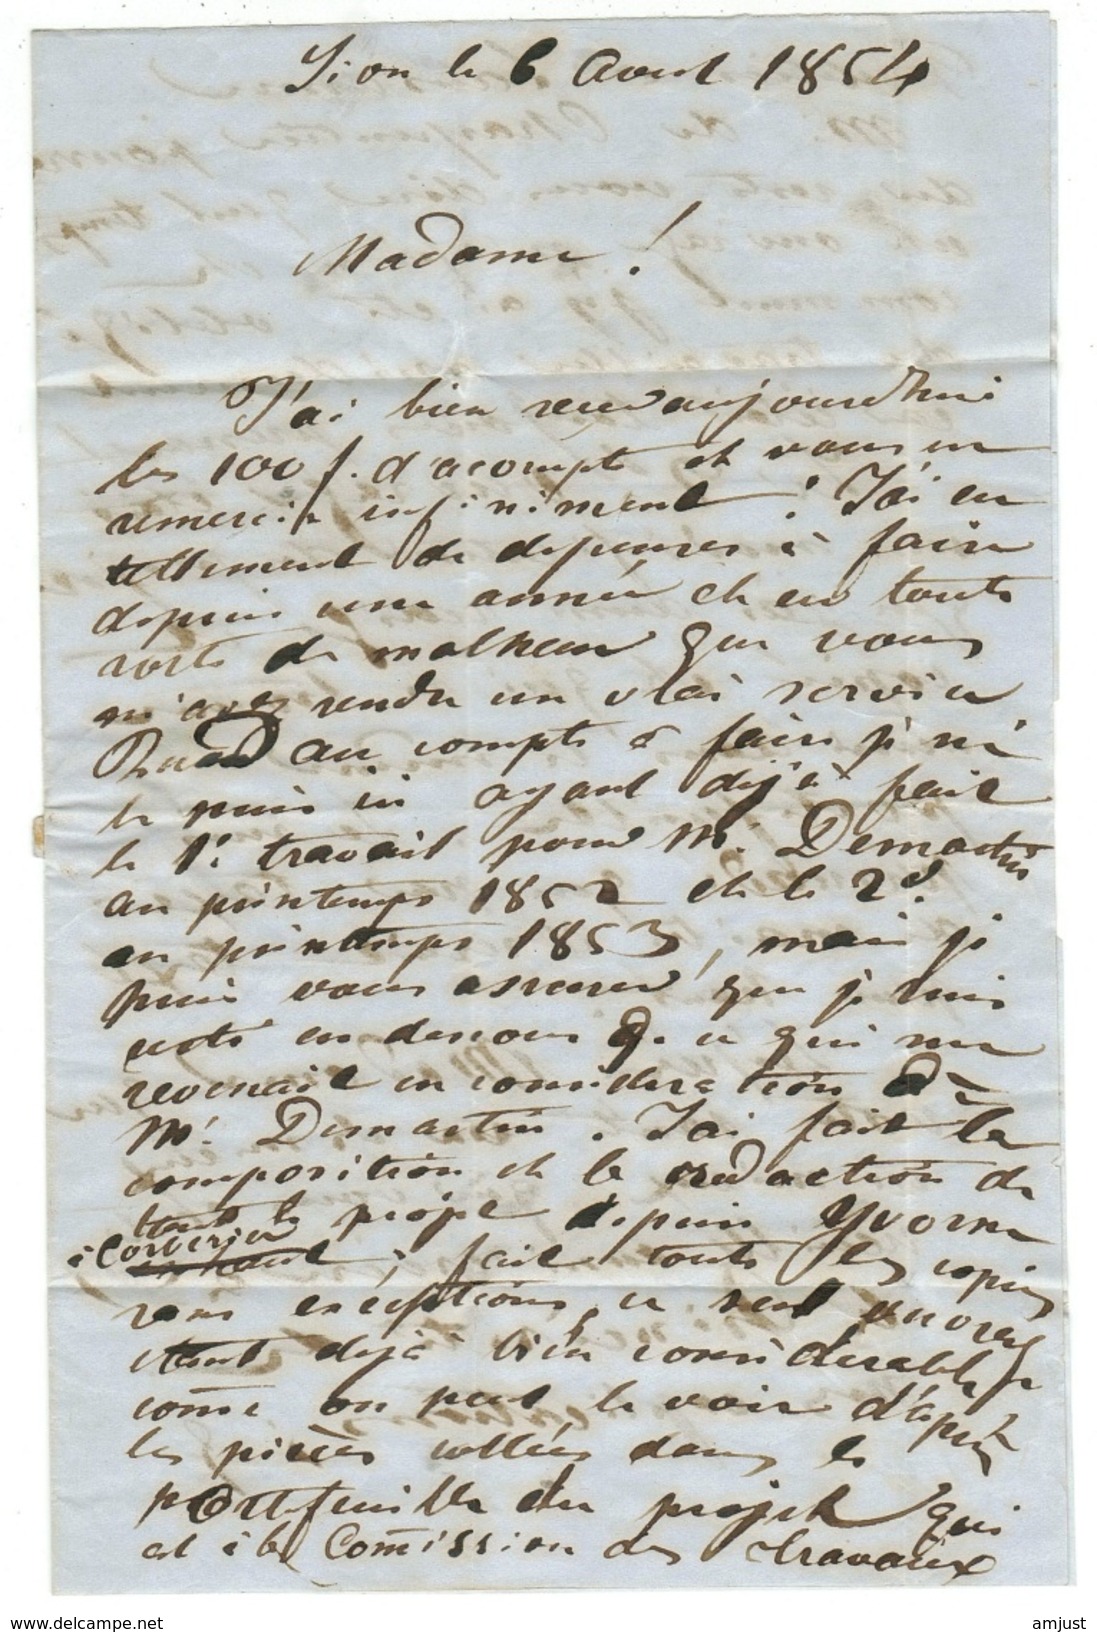 Sion le 6 Avril 1854
Madame !
J'ai bien recu aujourdhui
les 100 f. d'acompte et vous en
remercie infiniment ! J'ai eu
tellement de depenses à faire
depuis une année et eu toute
sorte de malheur que vous
m'avez rendu un vrai service
Quand au compte à faire je ne
le puis ici ayant déjà fait
le 1r. travail pour Mr. Demartin
au printemps 1852 et le 2d.
au printemps 1853, mais je
puis vous assurer que je suis
resté en dessous q. ce qui me
revenait en consideration de
Mr. Demartin. J'ai fait la
composition et la redaction de
tout le projet depuis Yvorne
à Corberier ; fait toute les copies
sans exceptions, ce seul ouvrage
étant déjà bien considerable
come on peut le voir d'après
les pièces collées dans le
portefeuille du projet qui
est à la Comission des travaux
amjust
amjust